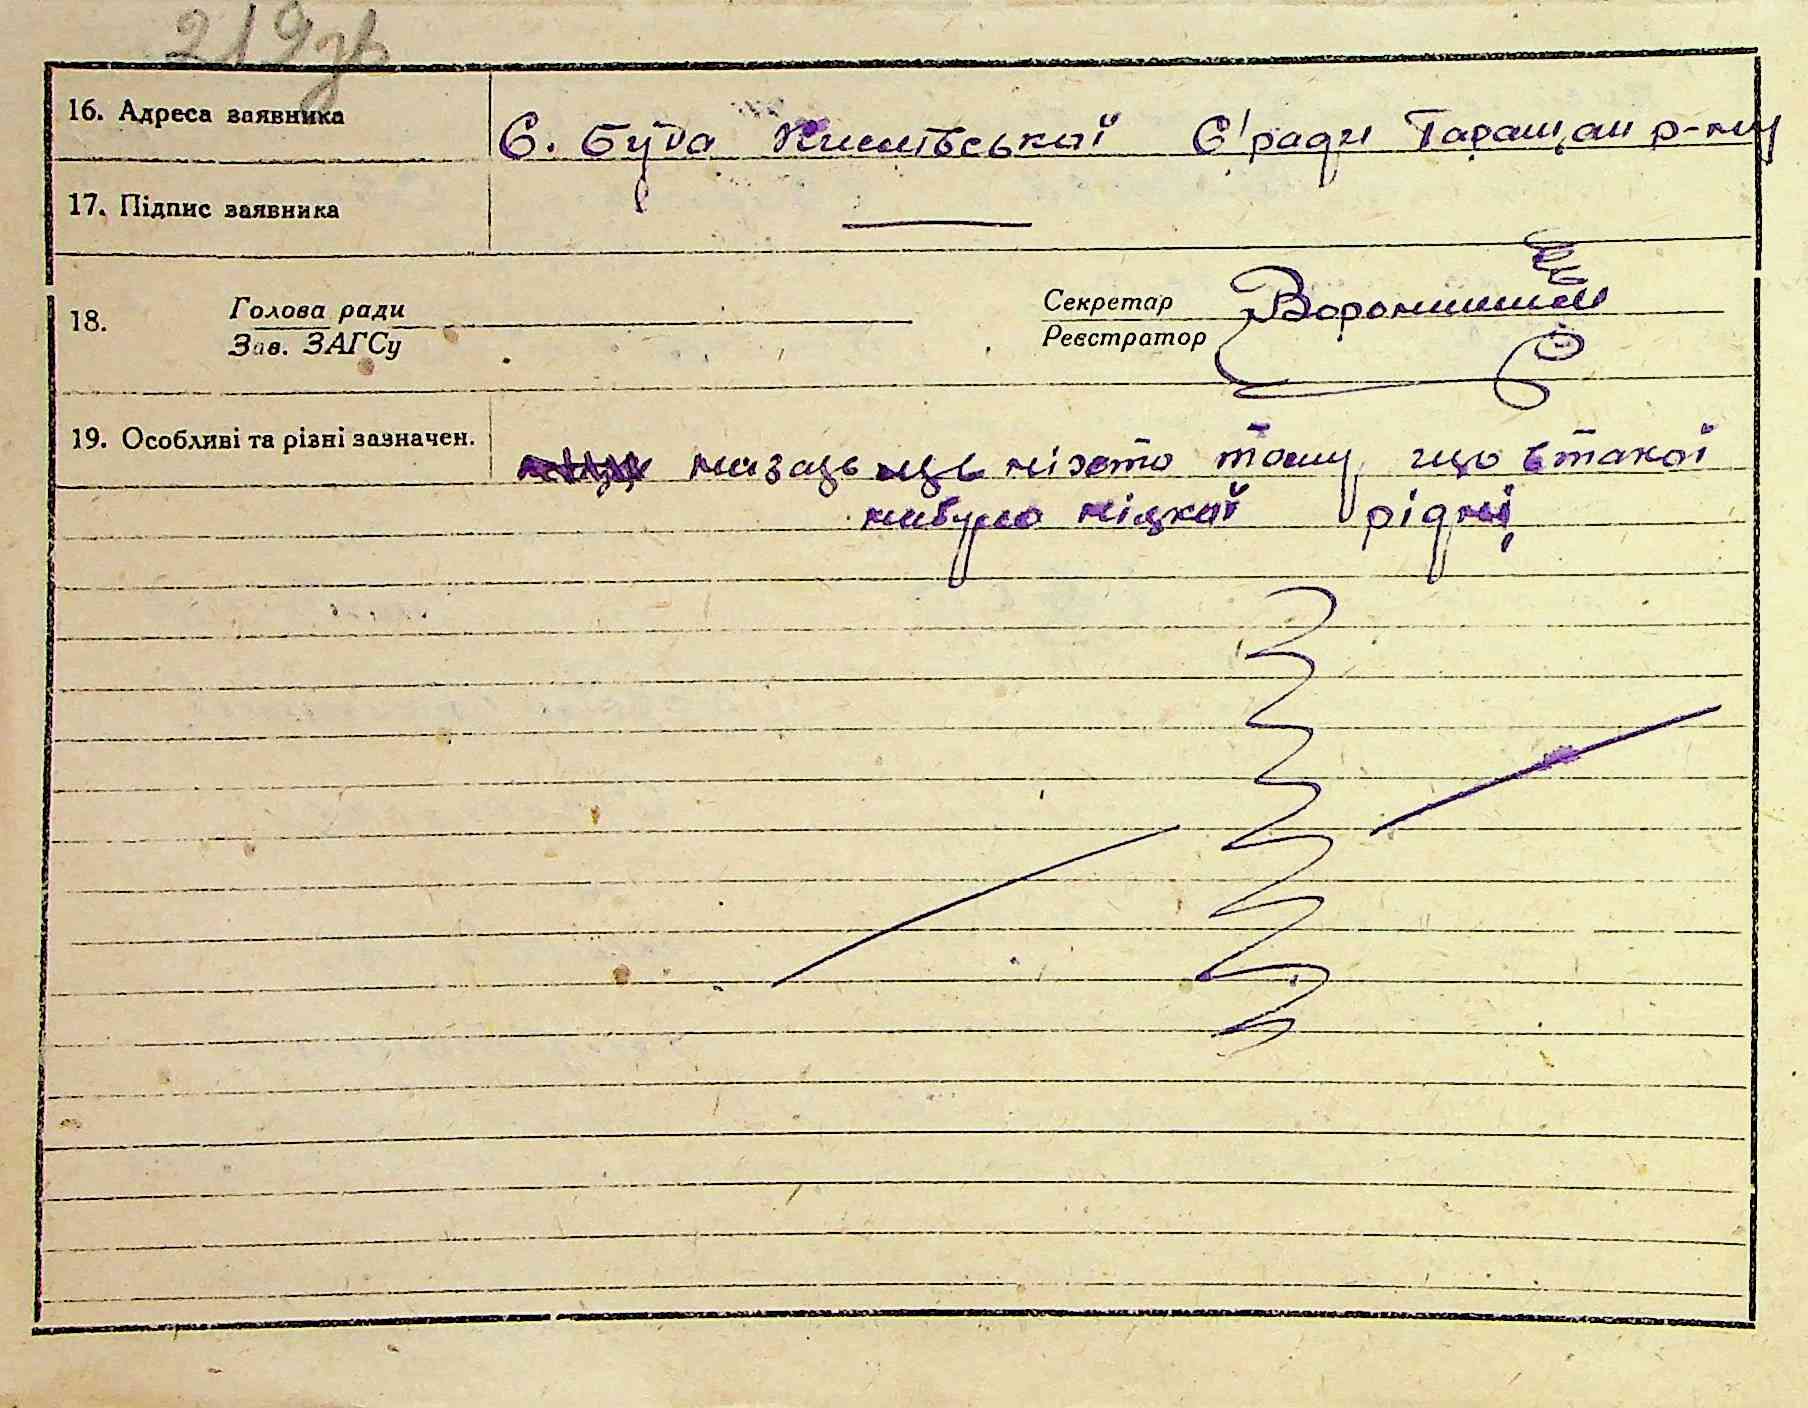 219зв
16. Адреса заявника
С. Буда Кислівської С/ради Таращан р-ну
17. Підпис заявника
18.
Голова ради
Зав. ЗАГСу
Секретар
Реєстратор
19. Особливі та різні зазначен.
ніхто тому що втакої
небуло ніякої рідні